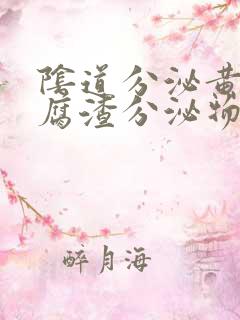 陰道分泌黄
腐渣分泌物
醉月海